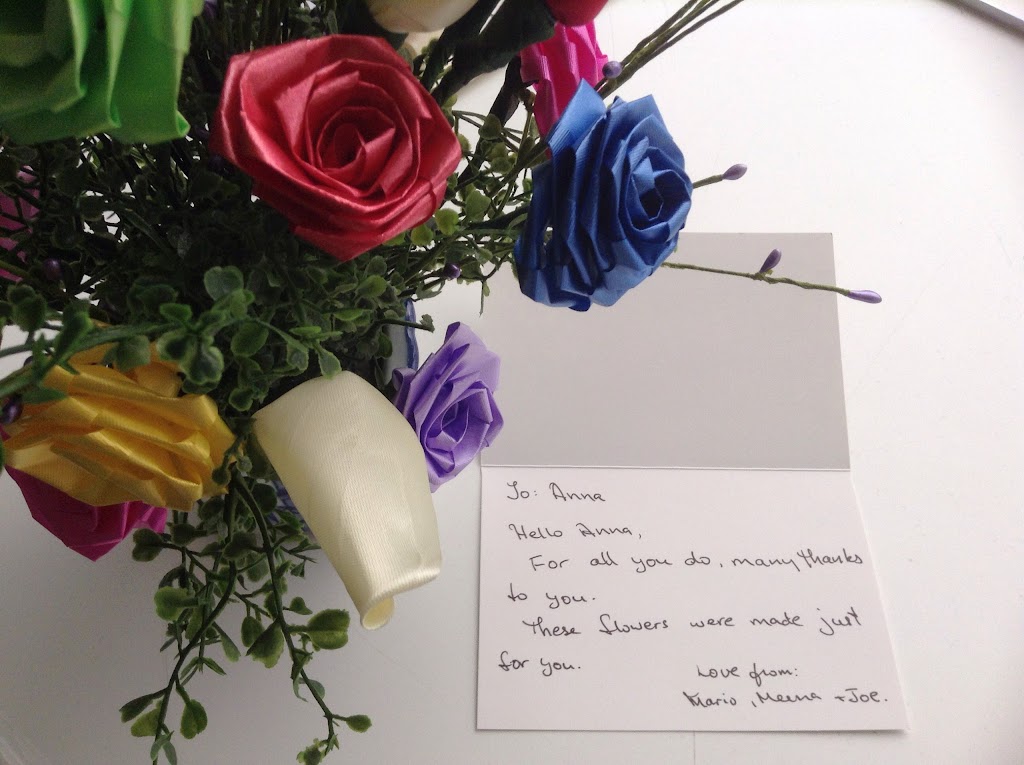 To: Anna
Hello Anna,
For all you do, many thanks
to you.
These flowers were made just
for you.
Love from:
Mario, Meena + Joe.